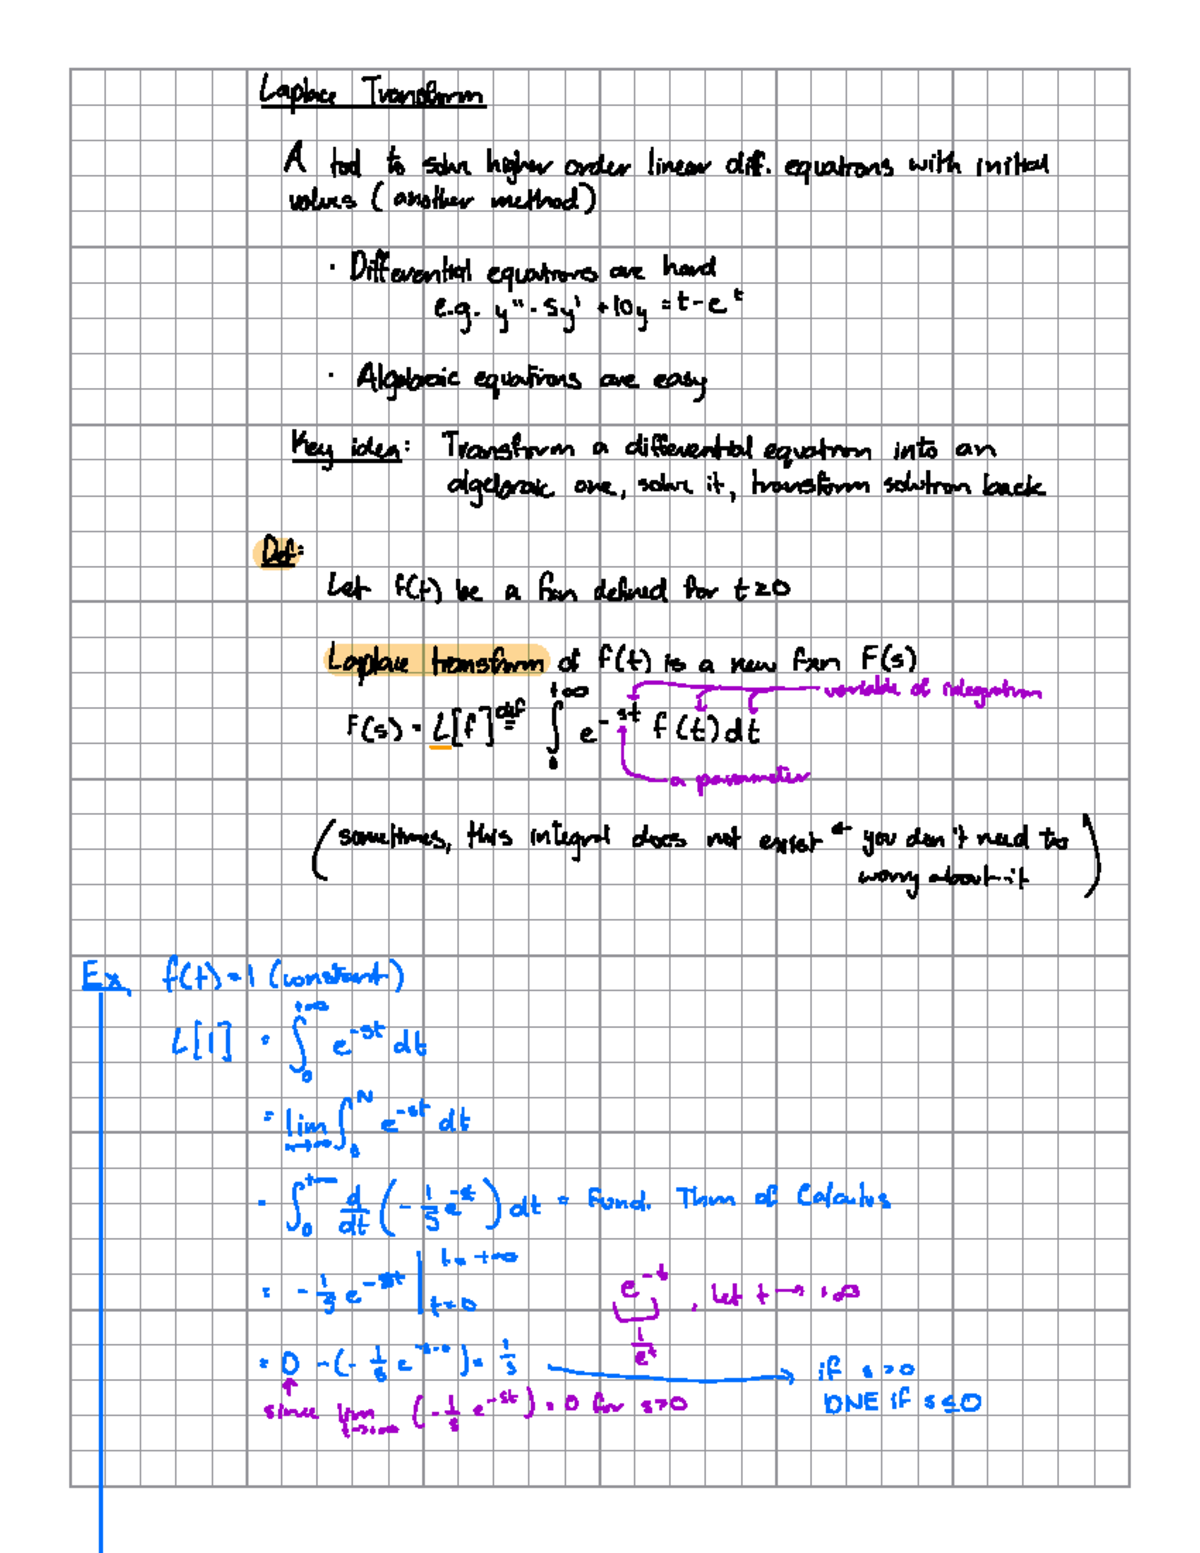 Laplace Transform
A tool to solve higher order linear diff. equations with initial
values (another method)
· Differential equations are hard
e.g. y'' - 5y' + 10y = t - e^t
· Algebraic equations are easy
Key idea: Transform a differential equation into an
algebraic one, solve it, transform solution back
Def:
Let f(t) be a fxn defined for t ≥ 0
Laplace transform of f(t) is a new fxn F(s)
variable of integration
F(s) = L[f] def= ∫_0^{+∞} e^{-st} f(t) dt
a parameter
(sometimes, this integral does not exist ← you don't need to
worry about it)
Ex. f(t) = 1 (constant)
L[1] = ∫_0^{+∞} e^{-st} dt
= lim_{→∞} ∫_0^N e^{-st} dt
= ∫_0^{+∞} d/dt (-1/s e^{-st}) dt = Fund. Thm of Calculus
= -1/s e^{-st} | t=+∞ t=0
e^{-t}, let t → +∞
1/e^t
= 0 - (-1/s e^{-s·0}) = 1/s → if s > 0
DNE if s ≤ 0
since lim_{t→+∞} (-1/s e^{-st}) = 0 for s>0